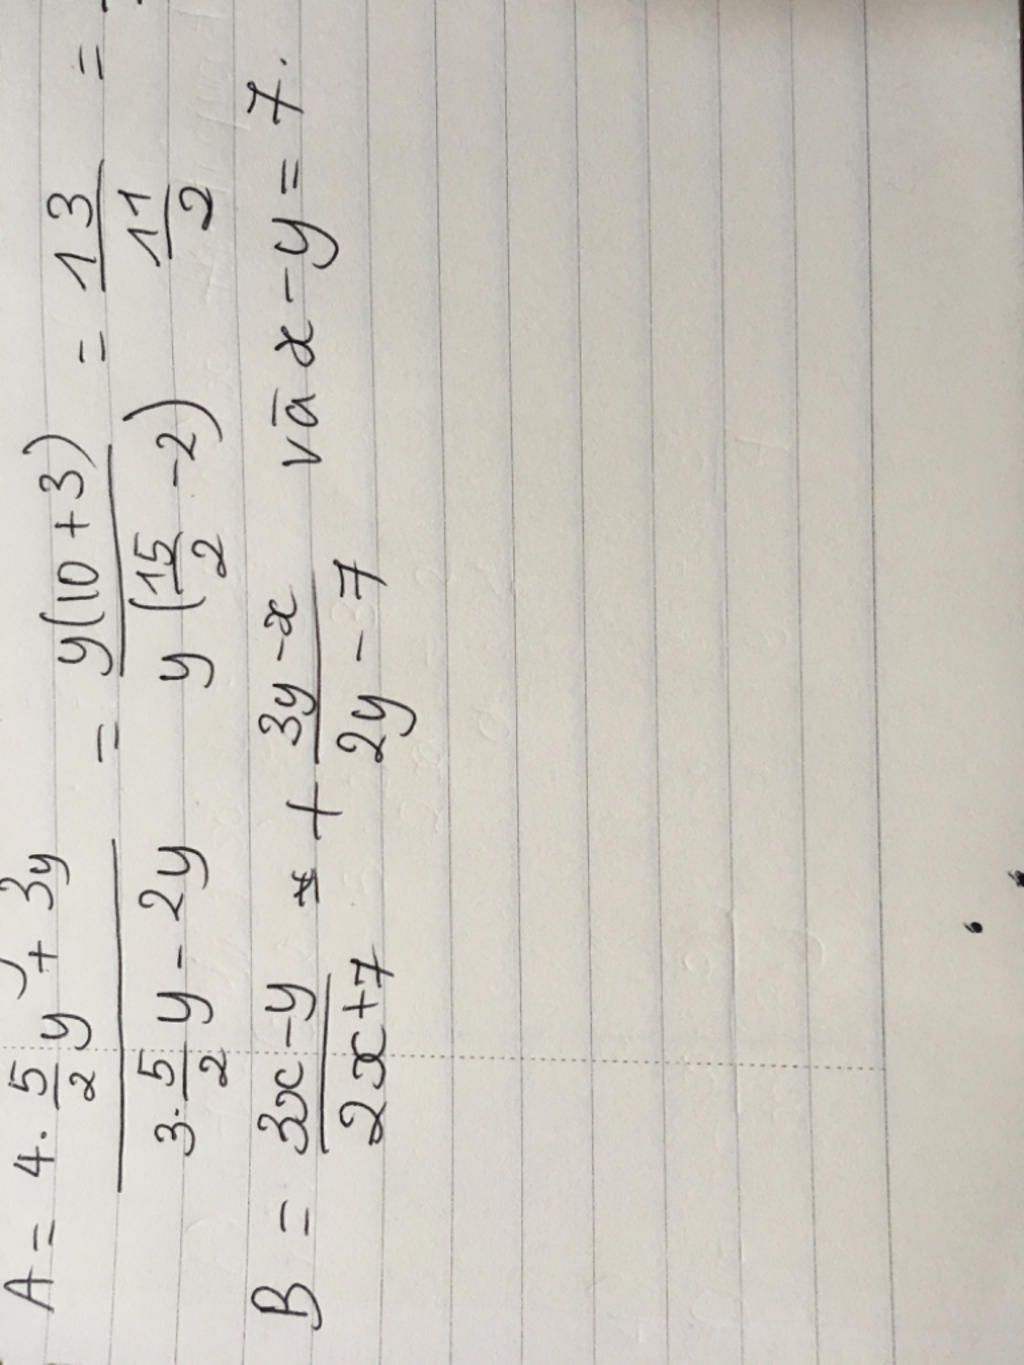 A = (4 . 5/2 y + 3y)/(3 . 5/2 y - 2y) = y(10 + 3)/y(15/2 - 2) = 13/(11/2) =
B = (3x - y)/(2x + 7) + (3y - x)/(2y - 7) và x - y = 7.